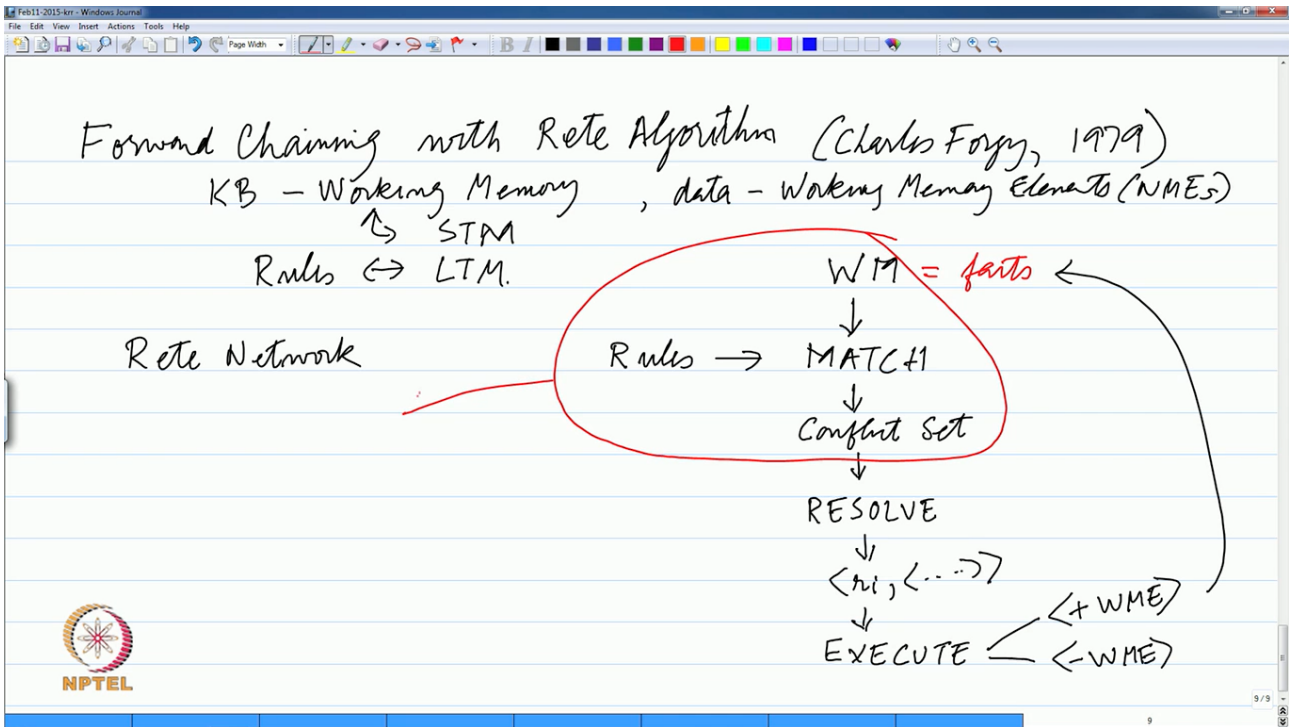 Feb11-2015-krr - Windows Journal
File Edit View Insert Actions Tools Help
Page Width
B I
Forward Chaining with Rete Algorithm (Charles Forgy, 1979)
KB - Working Memory , data - Working Memory Elements (WMEs)
STM
Rules ↔ LTM.
WM = facts
Rete Network
Rules → MATCH
Conflict Set
RESOLVE
<ri, <....>>
EXECUTE
<+ WME>
<- WME>
NPTEL
9/9
9